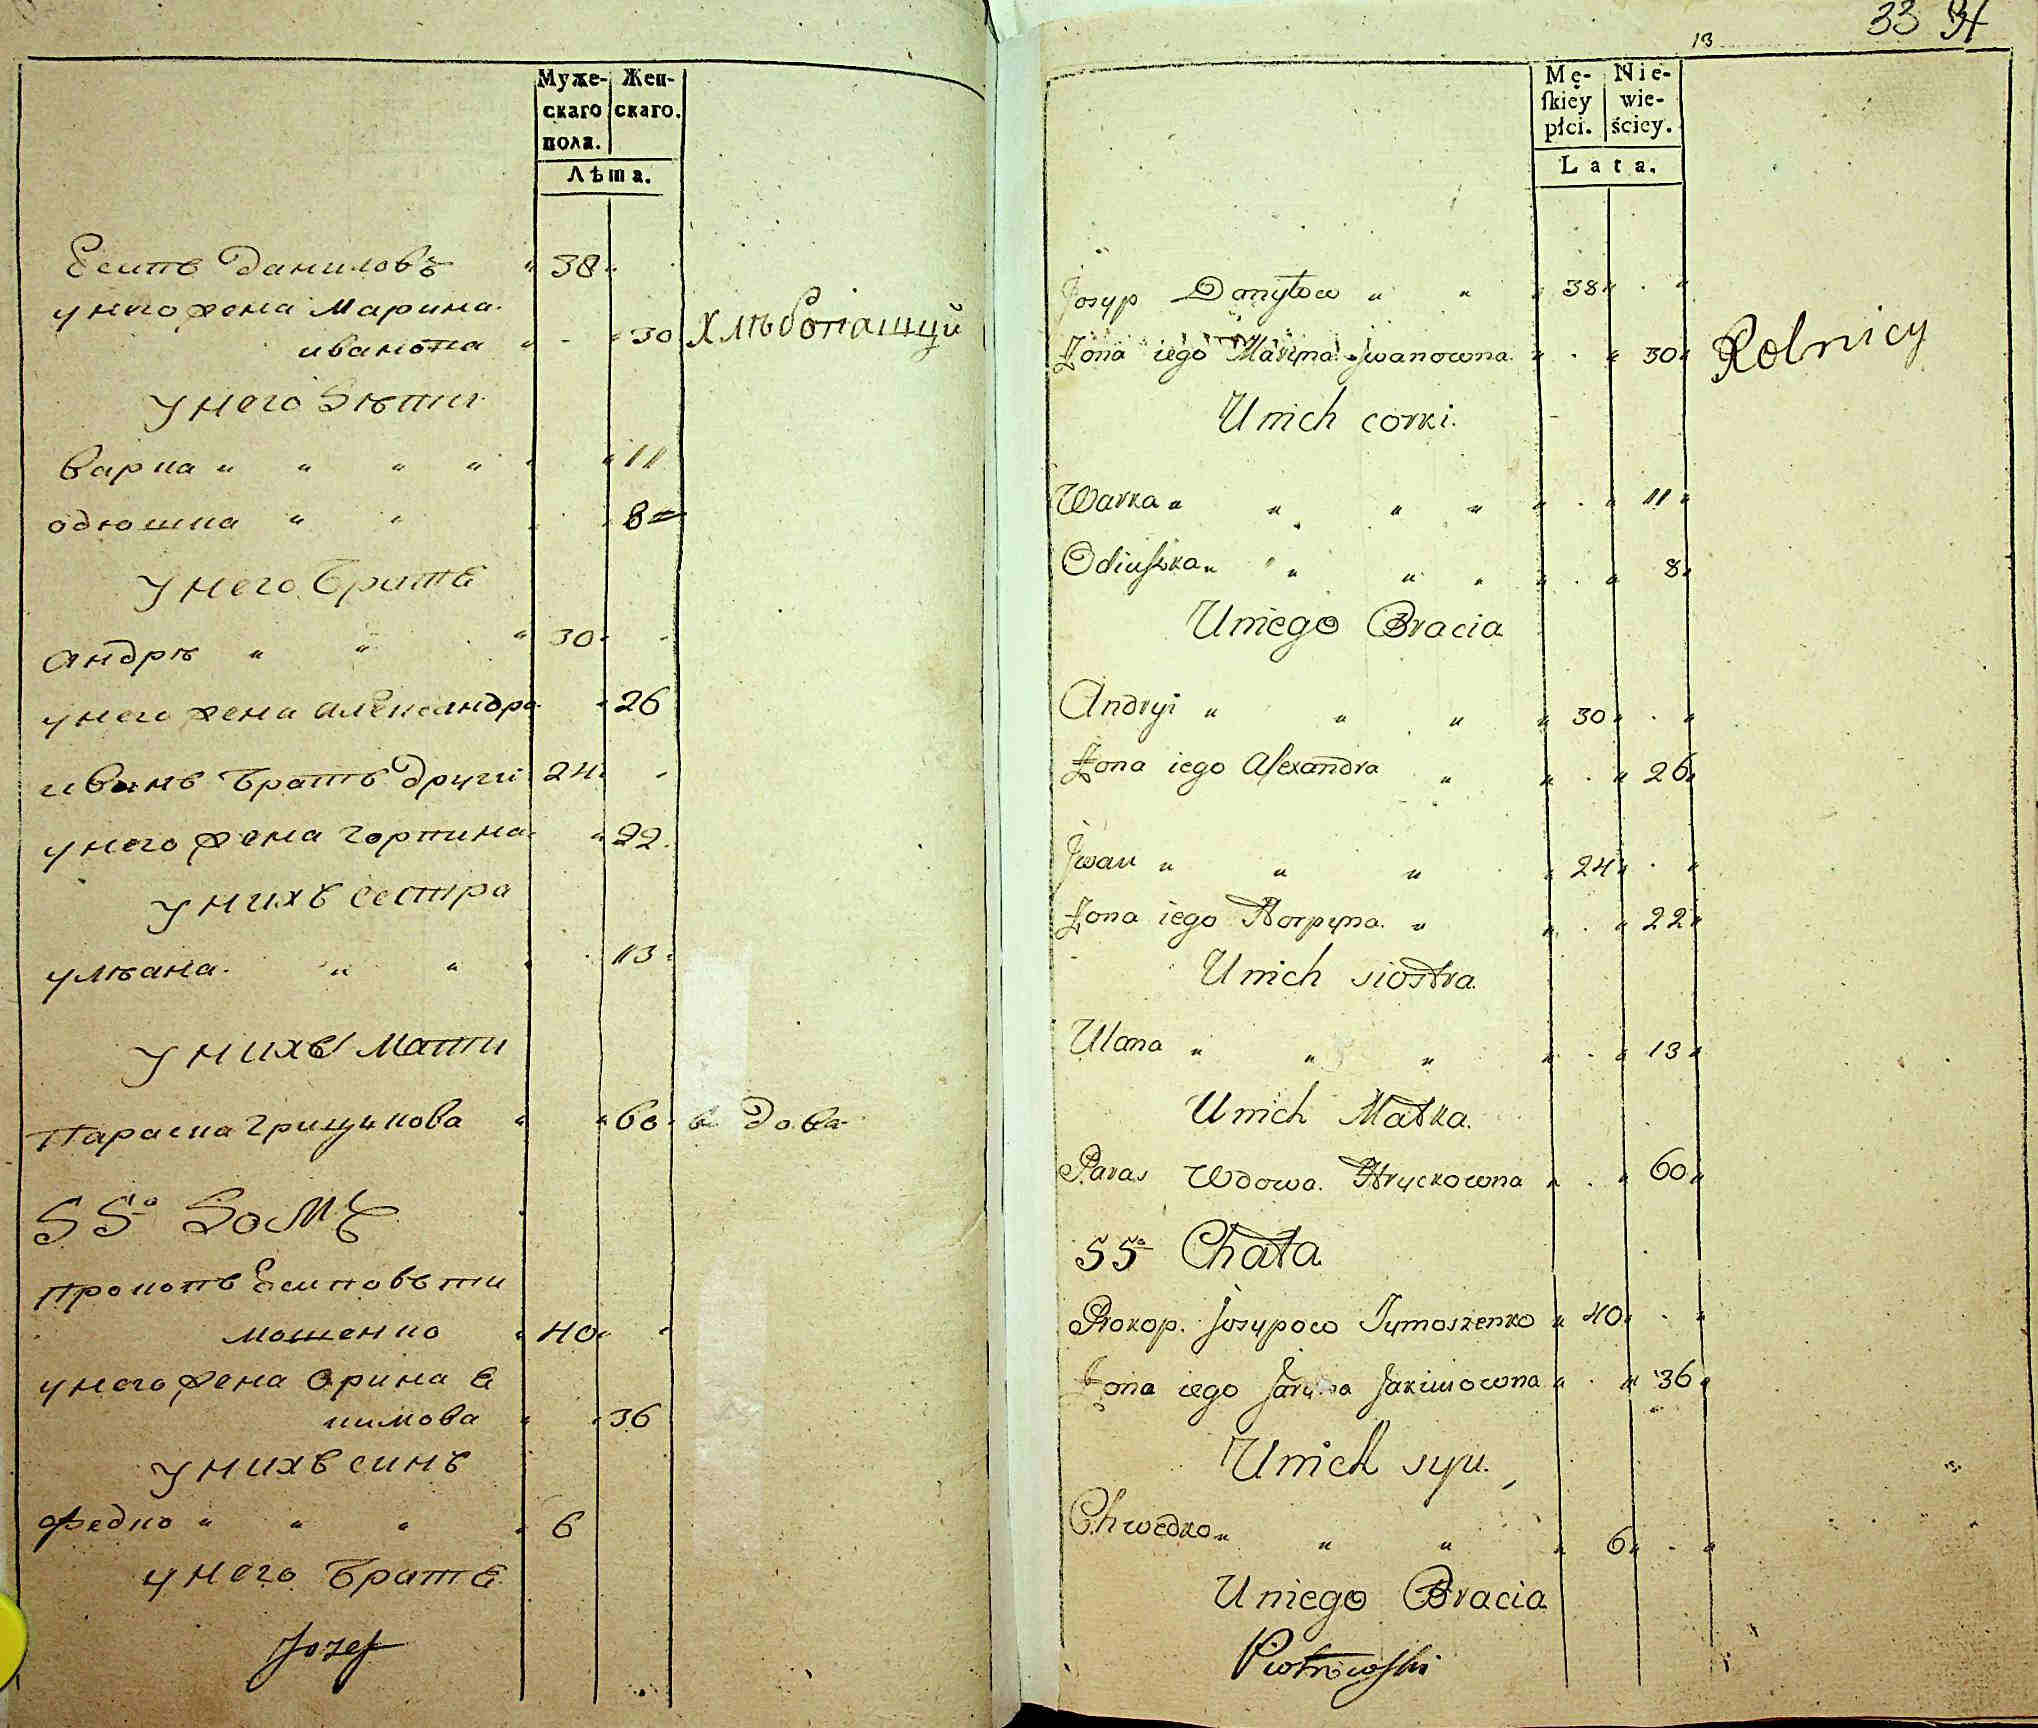 Муже- Жен-
скаго скаго.
пола.
Лѣта.
Есипъ Даниловъ " 38 "
у него жена Марина
иванова " - " 30 Хлѣбопашцы
у него Дѣти
Варка " " " " " 11
одюшка " " 8
у него братЕ
андрѣ " " " 30 "
у него жена алЕксандра " 26
иванъ братъ други 24 "
у него жена горпина " 22
у нихъ сестра
улѣана " " " 13
у нихъ мати
Параска грицкова " " 60 вдова
55о Домъ
прокопъ Есиповъ ти
мошенко " 40 "
у него жена Орина Е
кимова " " 36
у нихъ синъ
Федко " " " " 6
у него братЕ
Jozef
33 34
13
Mę- Nie-
skiéy wie-
płci. ścicy.
Lata.
Josyp Danyłow " " " 38 " . "
Żona iego Maryna Jwanowna " . " 30 " Rolnicy
U nich corki.
Warka " " " " " . " 11 "
Odiuszka " " " " " . " 8 "
U niego Bracia
Andryi " " " " 30 " . "
Żona iego Alexandra " " . " 26 "
Jwan " " " " 24 " . "
Żona iego Horpyna " " . " 22 "
U nich siostra
Ulana " " " " . " 13 "
U nich Matka.
Paras Wdowa. Hryckowna " . " 60 "
55o Chata
Prokop. Josypow Tymoszenko " 40 " . "
Żona iego Jaryna Jakimowna " . " 36 "
U nich syn.
Chwedko " " " " 6 " . "
U niego Bracia
Piotrowski